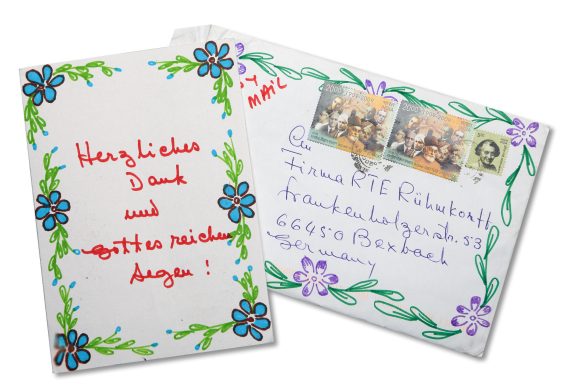 Herzliches
Dank
und
Gottes reichen
Segen !
MAIL
An
Firma RTE Rühmkorff
Frankenholzerstr. 53
66450 Bexbach
Germany